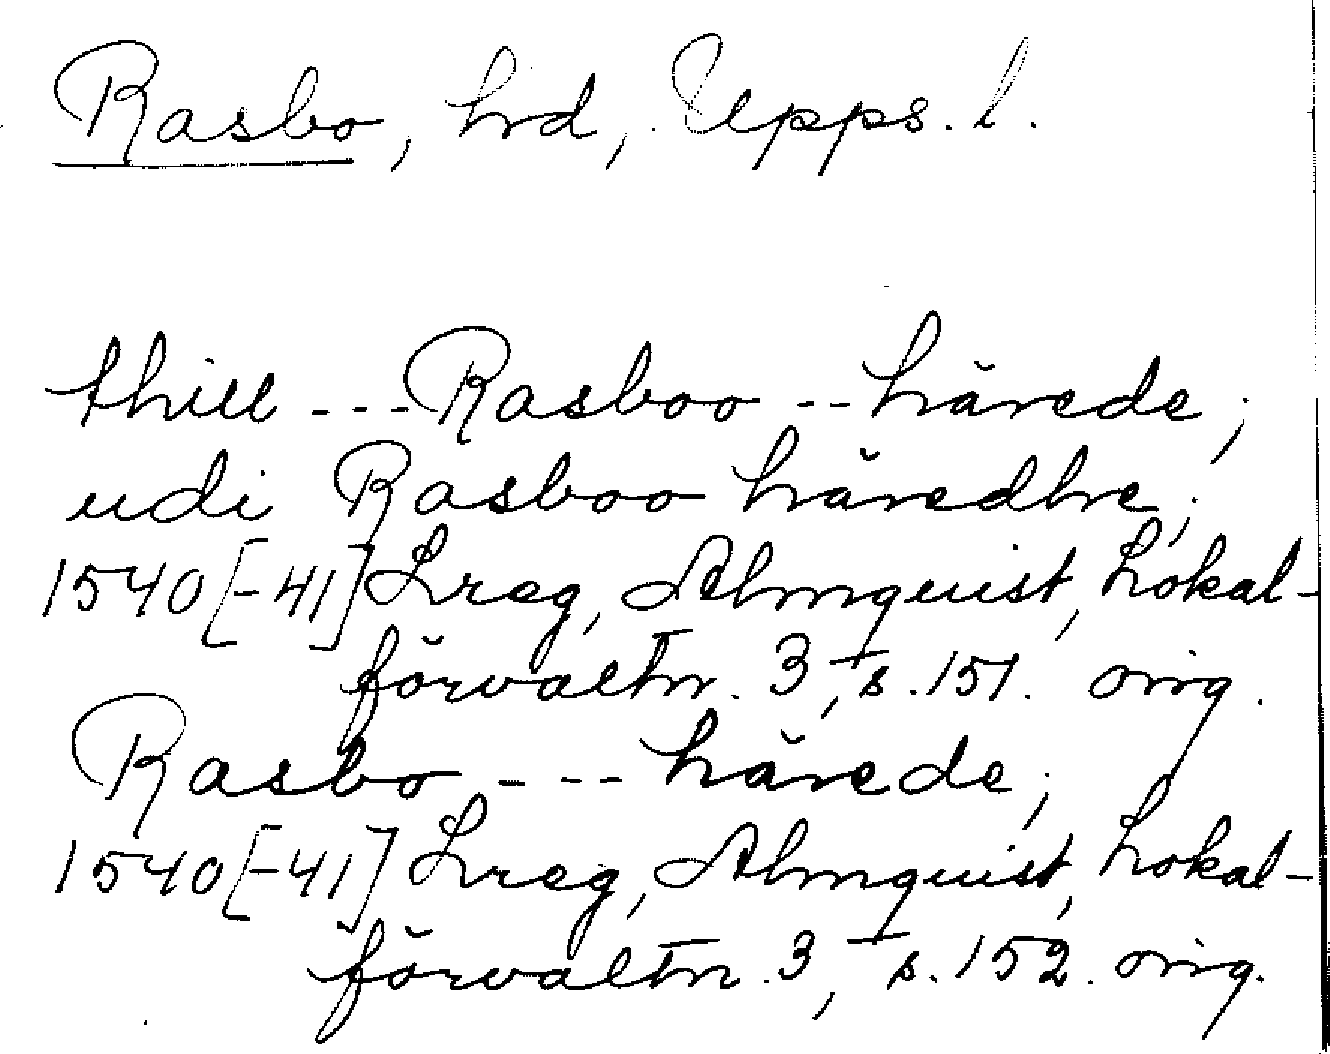 Rasbo, hrd, Upps. l.
thill --- Rasboo --härede;
udi Rasboo häredhe;
1540[-41] Lreg, Almquist, Lokal-
förvaltn. 3, s. 151. orig.
Rasbo --- härede;
1540[-41] Lreg, Almquist, Lokal-
förvaltn. 3, s. 152. orig.